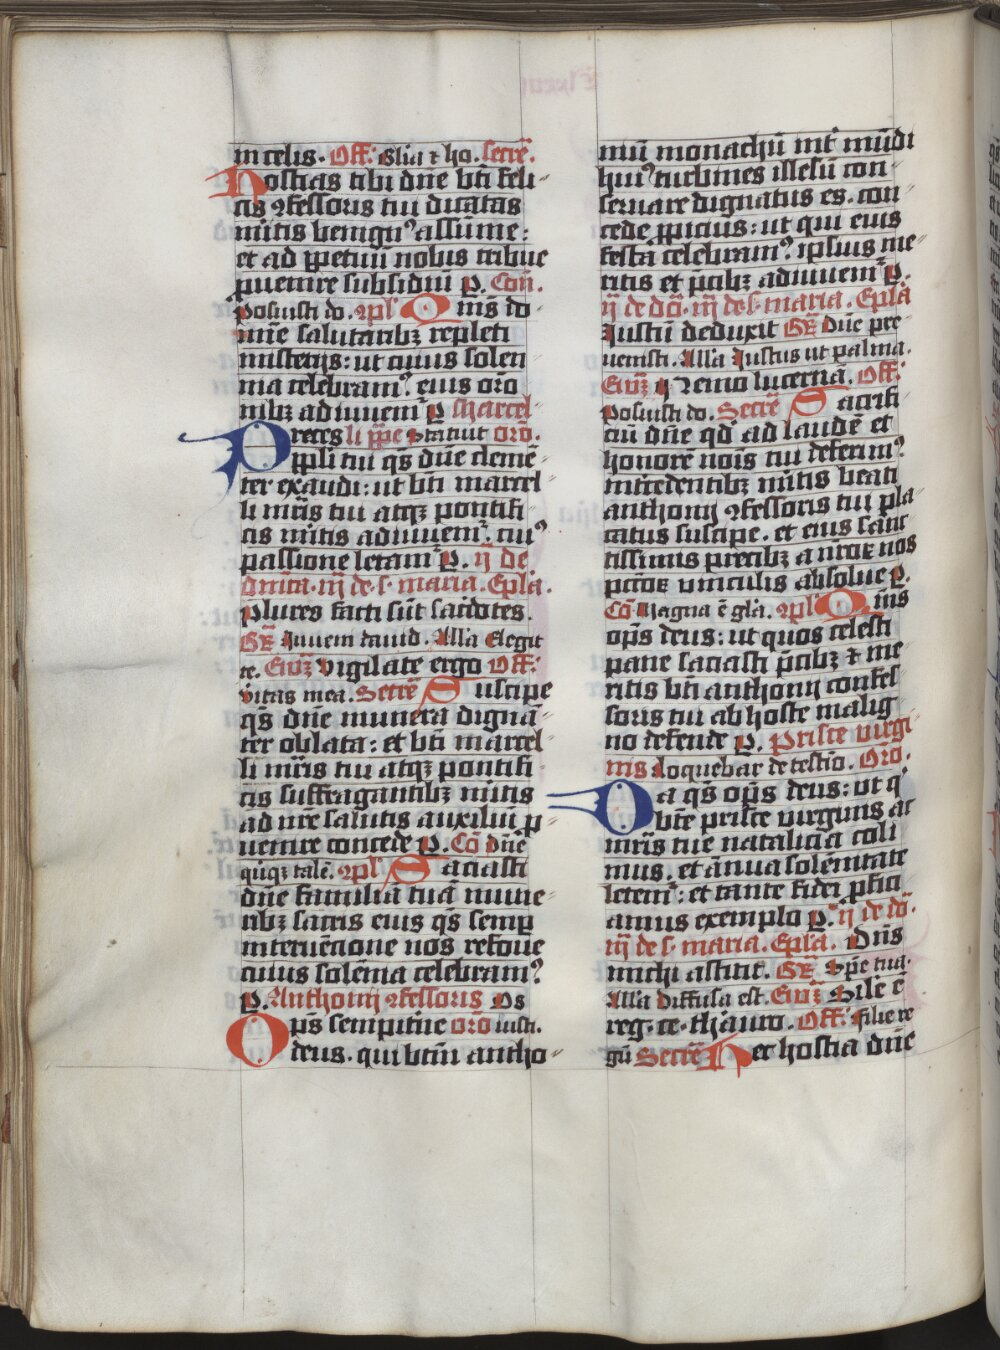 in celis. Off: Glīa ⁊ ho. secrē.
Hostias tibi dn̄e bt̄i feli
cis ꝯfessoris tui dicatas
mītis benignꝰ assūme:
et ad ꝑpetuū nobis tribue
puenire subsidiū ꝑ. Com̄.
Posuisti do. ꝯpl Quīs do
mīe salutaribꝫ repleti
misterijs: ut cuius solen
nia celebramꝰ eius orō
nibꝫ adiuuem̄ ꝑ Marcel
Preces li ꝑpe Statuit orō.
ppl̄i tui qs̄ dn̄e clemē
ter exaudi: ut bt̄i marcel
li mr̄is tui atqꝫ pontifi
cis mītis adiuuem̄. cuiꝰ
passione letam̄ ꝑ. ij de
dn̄ica. iij de. s. maria. Epl̄a.
Plures facti sūt sacdotes.
Gr̄ Inueni dauid. Alla Elegit
te. Euꝫ vigilate ergo Off:
Vitas mea. Secrē Suscipe
qs̄ dn̄e munera dignā
ter oblata: et bt̄i marcel
li mr̄is tui atqꝫ pontifi
cis suffragantibꝫ mītis
ad nr̄e salutis auxiliū ꝑ
uenire concede ꝑ. Cō dn̄e
quīqꝫ talē. ꝯpl Saciasti
dn̄e familiā tuā mune
ribꝫ sacris eius qs̄ semꝑ
interuēcione nos refoue
cuius solēnia celebramꝰ
ꝑ. Anthonij ꝯfessoris Os
Op̄s sempitn̄e orō iusti.
deus. qui btm̄ antho
niū monachū int̄ mūdi
huiꝰ turbines illesū con
seruare dignatus es. con
cede ꝓpicius: ut qui eius
festa celebramꝰ. ipsius me
ritis et p̄cibꝫ adiuuem̄ ꝑ.
ij de dō. iij de s. maria. Epl̄a
Iustū deduxit Gr̄ Dn̄e pre
uenisti. Alla Iustus ut palma.
Euꝫ ij Nemo lucernā. Off:
Posuisti do. Secrē Sacrifi
ciū dn̄e qd̄ ad laudē et
honorē nois̄ tui deferimꝰ
intcedentibꝫ mītis beati
anthonij ꝯfessoris tui pla
catus suscipe. et eius sanc
tissimis precibꝫ a nr̄oꝝ nos
pccōꝝ vinculis absolue ꝑ.
Cō Magna ē glā. ꝯpl Quīs
op̄s deus: ut quos celesti
pane saciasti p̄cibꝫ ⁊ me
ritis bt̄i anthonij confes
soris tui ab hoste malig
no defende ꝑ. Prisce virgi
nis Loquebar de testīo. Orō.
Da qs̄ op̄s deus: ut q
bt̄e prisce virginis ac
mr̄is tue natalicia coli
mus. et ānua solēnitate
letem̄: et tante fidei ꝓfici
amus exemplo ꝑ. ij de dō.
iij de s. maria. Epl̄a. Dn̄s
michi astitit. Gr̄. Spē tua.
Alla Diffusa est. Euꝫ Sile ē
reg. ce. thauro. Off: Filie re
gū Secrē Hec hostia dn̄e